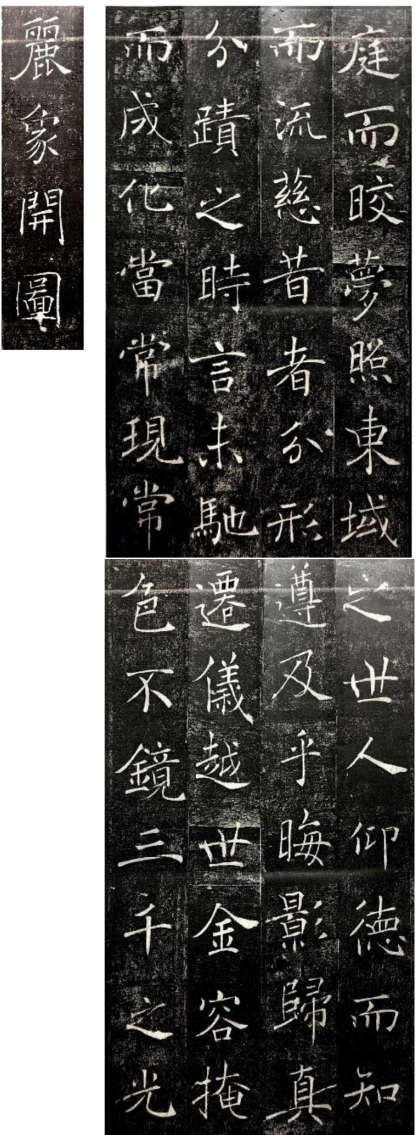 庭而晈夢照東域
而流慈昔者分形
分蹟之時言未馳
而成化當常現常
之世人仰德而知
遵及乎晦影歸真
遷儀越世金容掩
色不鏡三千之光
麗象開圖